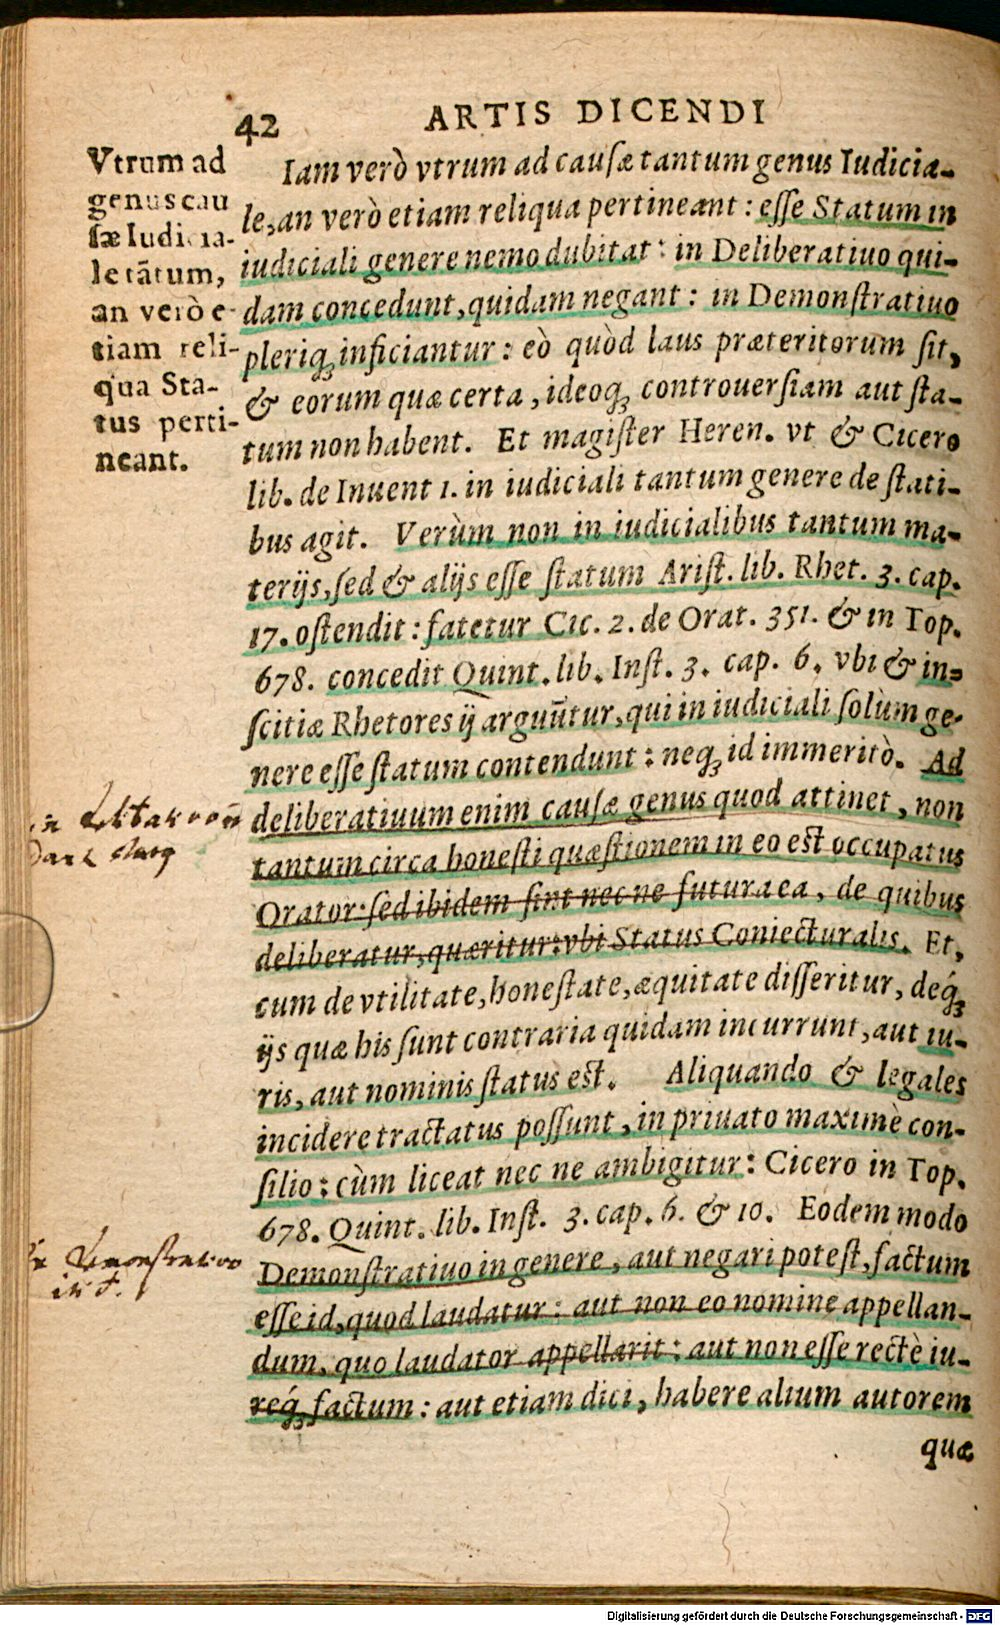 42 ARTIS DICENDI
Vtrum ad
genus cau
sæ Iudicia-
le tãtum,
an verò e-
tiam reli-
qua Sta-
tus perti-
neant.
Iam verò vtrum ad causæ tantum genus Iudicia-
le, an verò etiam reliqua pertineant: esse Statum in
iudiciali genere nemo dubitat: in Deliberatiuo qui-
dam concedunt, quidam negant: in Demonstratiuo
pleriq; inficiantur: eò quòd laus præteritorum sit,
& eorum quæ certa, ideoq; controuersiam aut sta-
tum non habent. Et magister Heren. vt & Cicero
lib. de Inuent 1. in iudiciali tantum genere de stati-
bus agit. Verùm non in iudicialibus tantum ma-
terijs, sed & alijs esse statum Arist. lib. Rhet. 3. cap.
17. ostendit: fatetur Cic. 2. de Orat. 351. & in Top.
678. concedit Quint. lib. Inst. 3. cap. 6. vbi & in-
scitiæ Rhetores ij arguũtur, qui in iudiciali solùm ge-
nere esse statum contendunt: neq; id immeritò. Ad
deliberatiuum enim causæ genus quod attinet, non
tantum circa honesti quæstionem in eo est occupatus
Orator: sed ibidem sint nec ne futura ea, de quibus
deliberatur, quæritur: vbi Status Coniecturalis. Et,
cum de vtilitate, honestate, æquitate disseritur, deq́;
ijs quæ his sunt contraria quidam incurrunt, aut iu-
ris, aut nominis status est. Aliquando & legales
incidere tractatus possunt, in priuato maximè con-
silio: cùm liceat nec ne ambigitur: Cicero in Top.
678. Quint. lib. Inst. 3. cap. 6. & 10. Eodem modo
Demonstratiuo in genere, aut negari potest, factum
esse id, quod laudatur: aut non eo nomine appellan-
dum, quo laudator appellarit: aut non esse rectè iu-
req́; factum: aut etiam dici, habere alium autorem
quæ
Digitalisierung gefördert durch die Deutsche Forschungsgemeinschaft - DFG